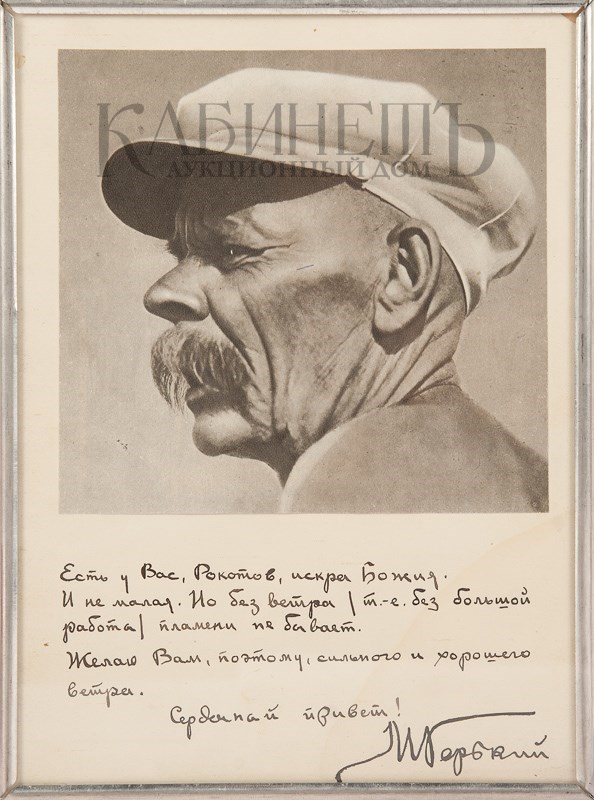 КАБИНЕТЪ
АУКЦИОННЫЙ ДОМ
Есть у Вас, Рокотов, искра Божия.
И не малая. Но без ветра / т.-е. без большой
работы / пламени не бывает.
Желаю Вам, поэтому, сильного и хорошего
ветра.
Сердечный привет!
М Горький